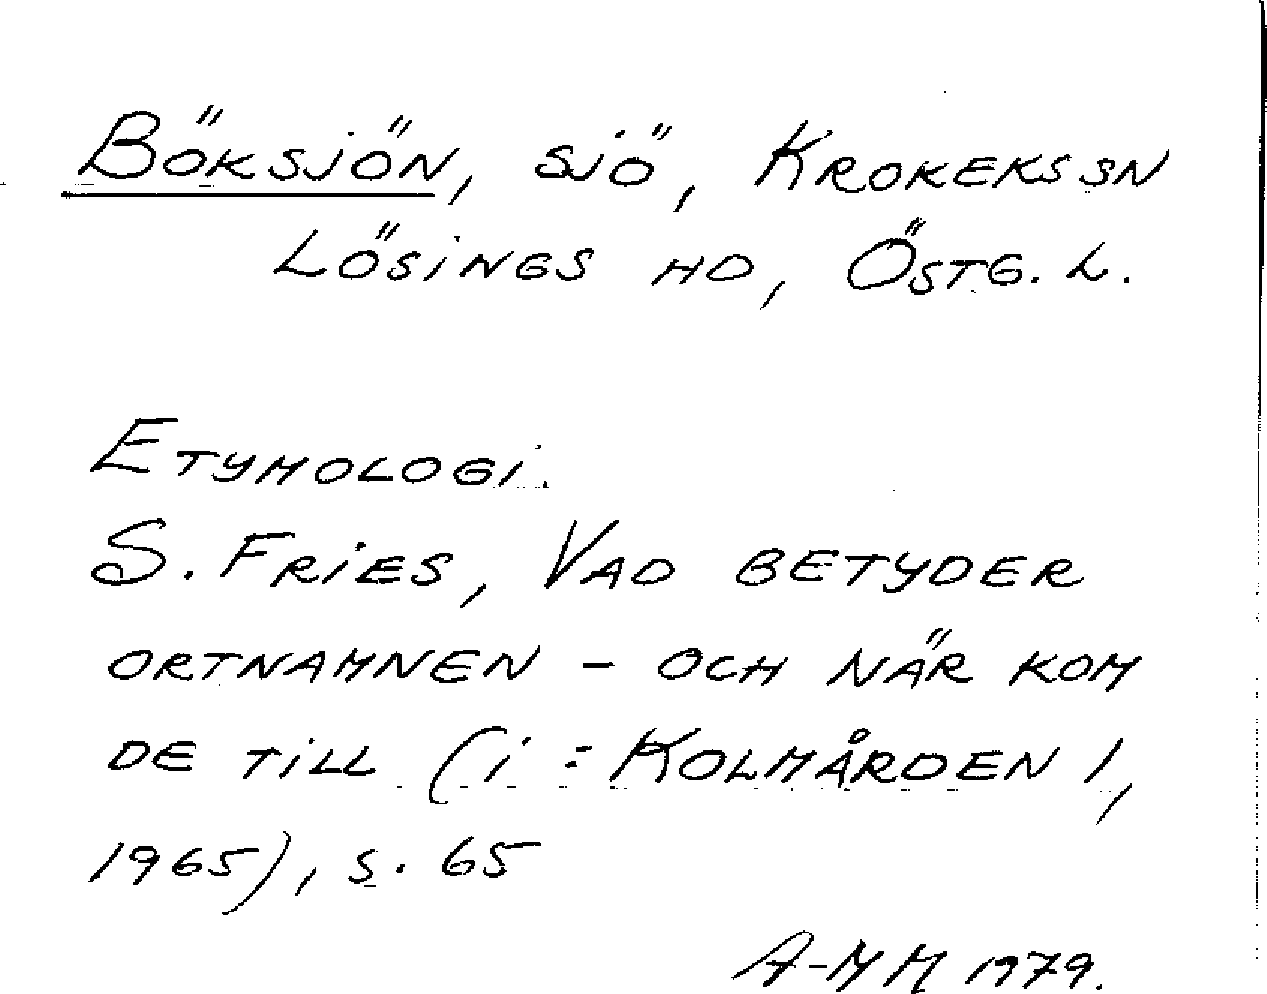 Böksjön, sjö, Krokeks sn
Lösings hd, Östg. l.
Etymologi.
S. Fries, Vad betyder
ortnamnen – och när kom
de till (i: Kolmården 1,
1965), s. 65
A-MM 1979.